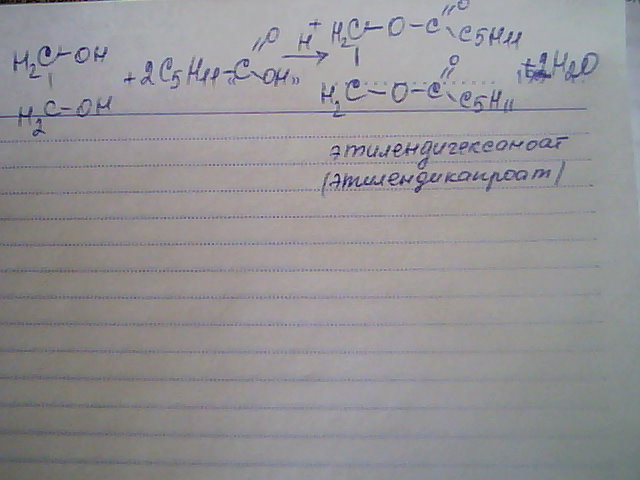 H2C-OH + 2C5H11-C(=O)OH →(H+) H2C-O-C(=O)C5H11
H2C-OH H2C-O-C(=O)C5H11 + 2H2O
этилендигексаноат
(этилендикапроат)